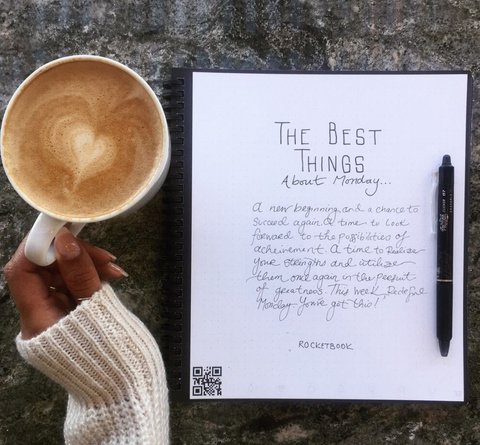 THE BEST
THINGS
About Monday...
A new beginning and a chance to
succeed again. A time to look
forward to the possibilities of
acheivement. A time to Realize
your strengths and utilize
them once again in the pursuit
of greatness. This week, Redefine
Monday. You've got this!
ROCKETBOOK